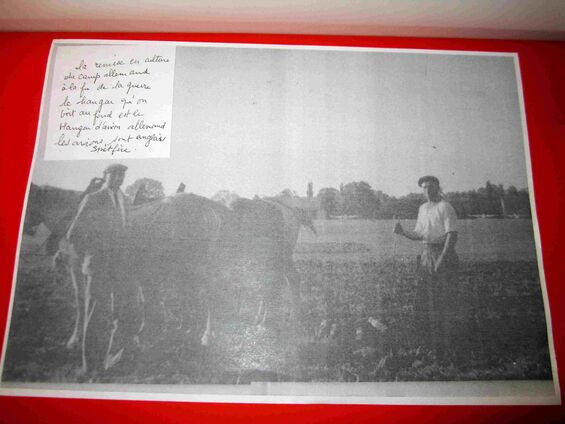 la remise en culture
du camp allemand
à la fin de la guerre
le hangar qu'on
voit au fond est le
Hangar d'avion allemand
les avions sont anglais
spitfire.